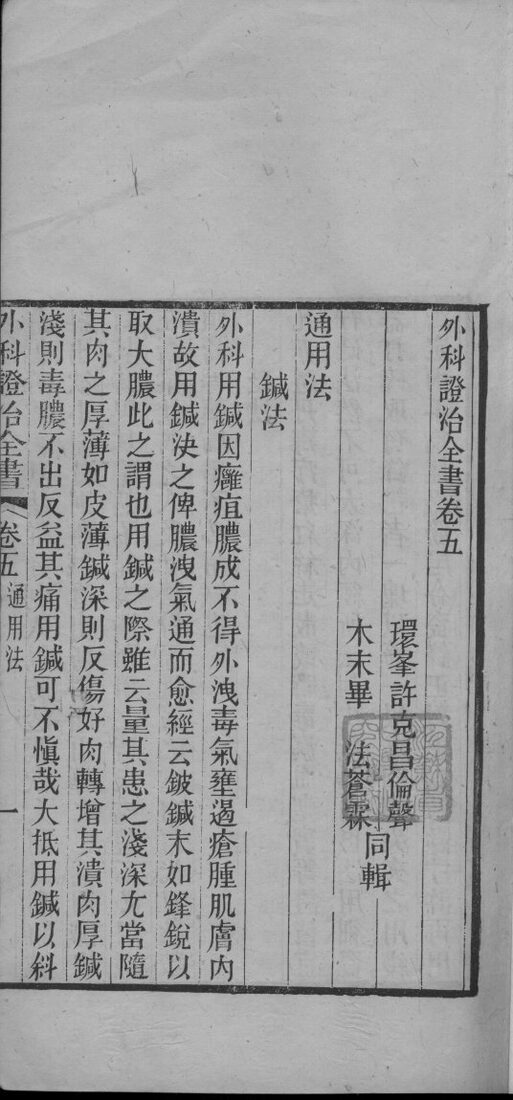 外科證治全書卷五
環峯許克昌倫聲
木末畢　法蒼霖
同輯
通用法
鍼法
外科用鍼因癰疽膿成不得外洩毒氣壅遏瘡腫肌膚內
潰故用鍼決之俾膿洩氣通而愈經云鈹鍼末如鋒銳以
取大膿此之謂也用鍼之際雖云量其患之淺深尤當隨
其肉之厚薄如皮薄鍼深則反傷好肉轉增其潰肉厚鍼
淺則毒膿不出反益其痛用鍼可不慎哉大抵用鍼以斜
外科證治全書　卷五　通用法　一